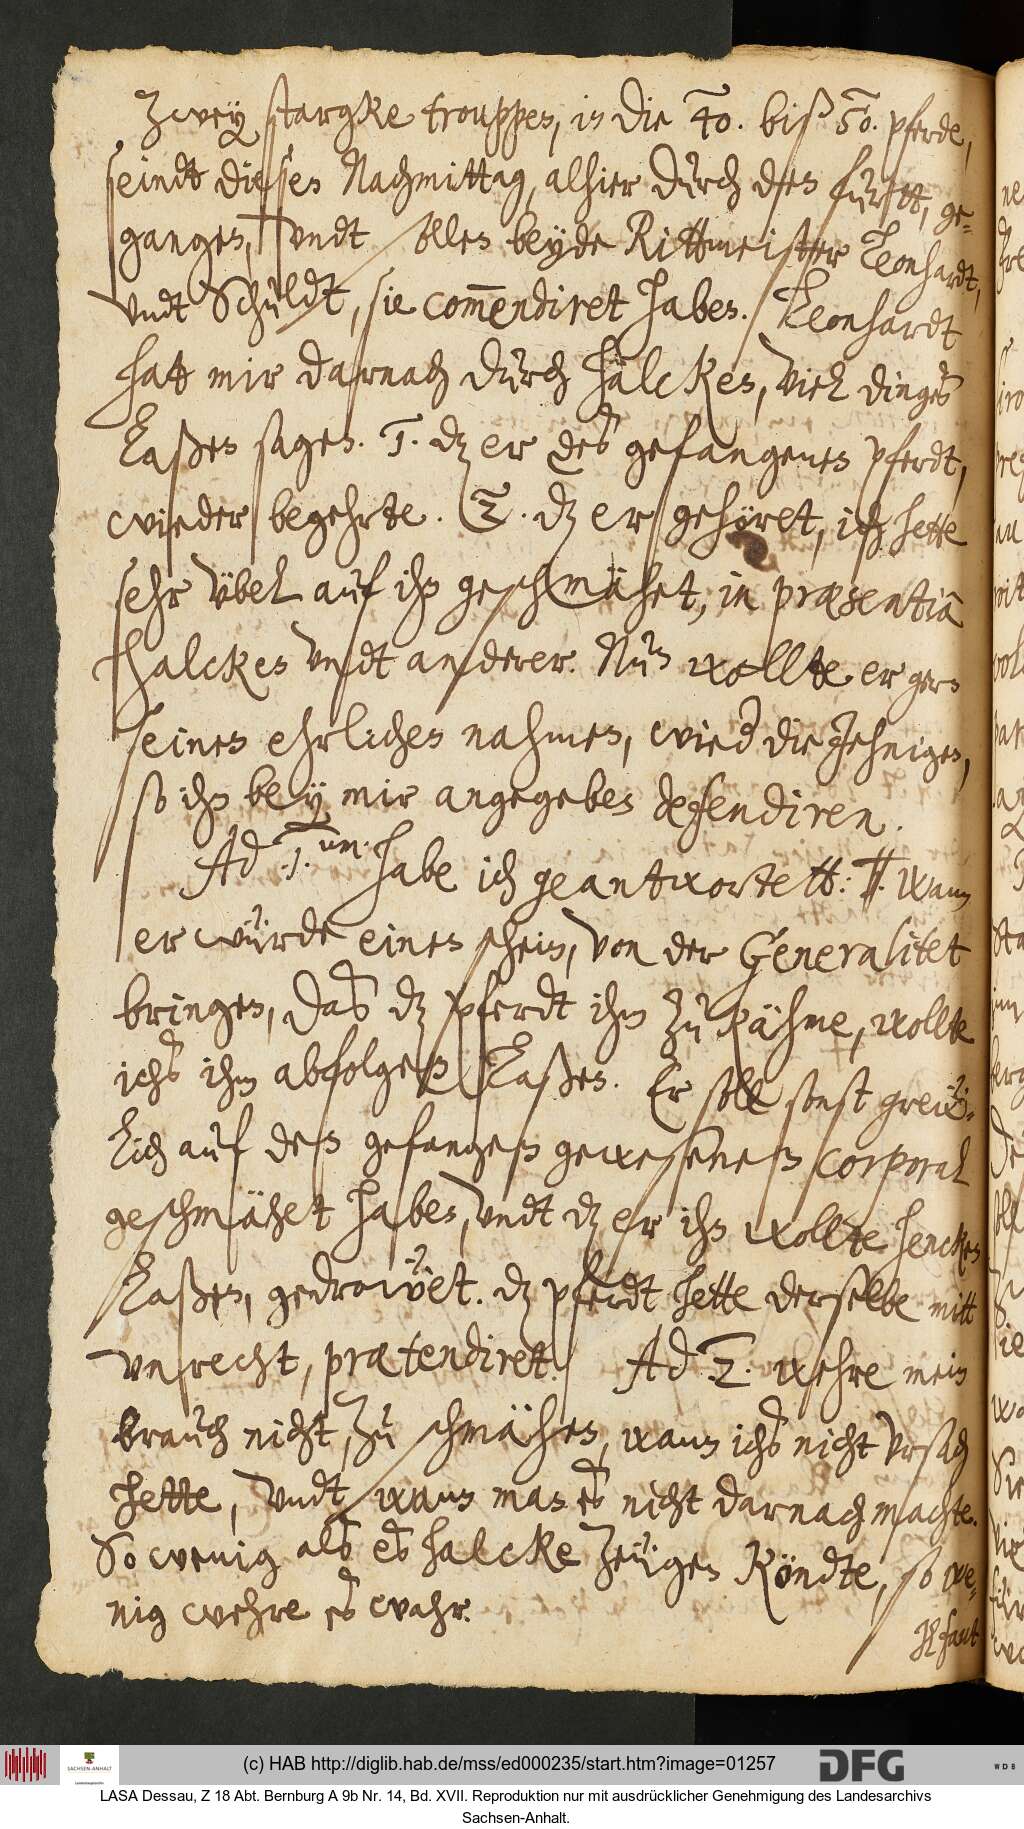 Zwey stargke trouppen, in die 40. biß 50. pferde,
seindt diesen Nachmittag, alhier durch den furtt, ge-
gangen, vndt sollen beyde Rittmeister Leonhardt,
vndt Schuldt, sie com̅endiret haben. Leonhardt
hatt mir darnach durch Halcken, viel dinges
laßen sagen. 1. dz er des gefangenen pferdt,
wieder begehrte. 2. dz er gehöret, ich hette
sehr vbel auf ihn geschmähet, in præsentiâ
Halcken vndt anderer. Nun wollte er gern
seinen ehrlichen nahmen, wied die Jehnigen,
so ihn bey mir angegeben defendiren.
Ad 1.um. habe ich geantwortett: Wann
er würde einen schein, von der Generalitet
bringen, das dz pferdt ihm zu kähme, wollte
ichs ihm abfolgen laßen. Er soll sonst grew-
lich auf den gefangen gewesenen corporal
geschmähet haben, vndt dz er ihn wollte hencken
laßen, gedrowet. dz pferdt hette derselbe mitt
vnrecht, prætendirett. Ad 2. wehre mein
brauch nicht, zu schmähen, wann ichs nicht vrsach
hette, vndt wann man es nicht darnach machte.
So wenig als es Halcke zeugen köndte, so we-
nig wehre es wahr.
Jl faut
(c) HAB http://diglib.hab.de/mss/ed000235/start.htm?image=01257
SACHSEN-ANHALT
DFG
WDB
LASA Dessau, Z 18 Abt. Bernburg A 9b Nr. 14, Bd. XVII. Reproduktion nur mit ausdrücklicher Genehmigung des Landesarchivs
Sachsen-Anhalt.